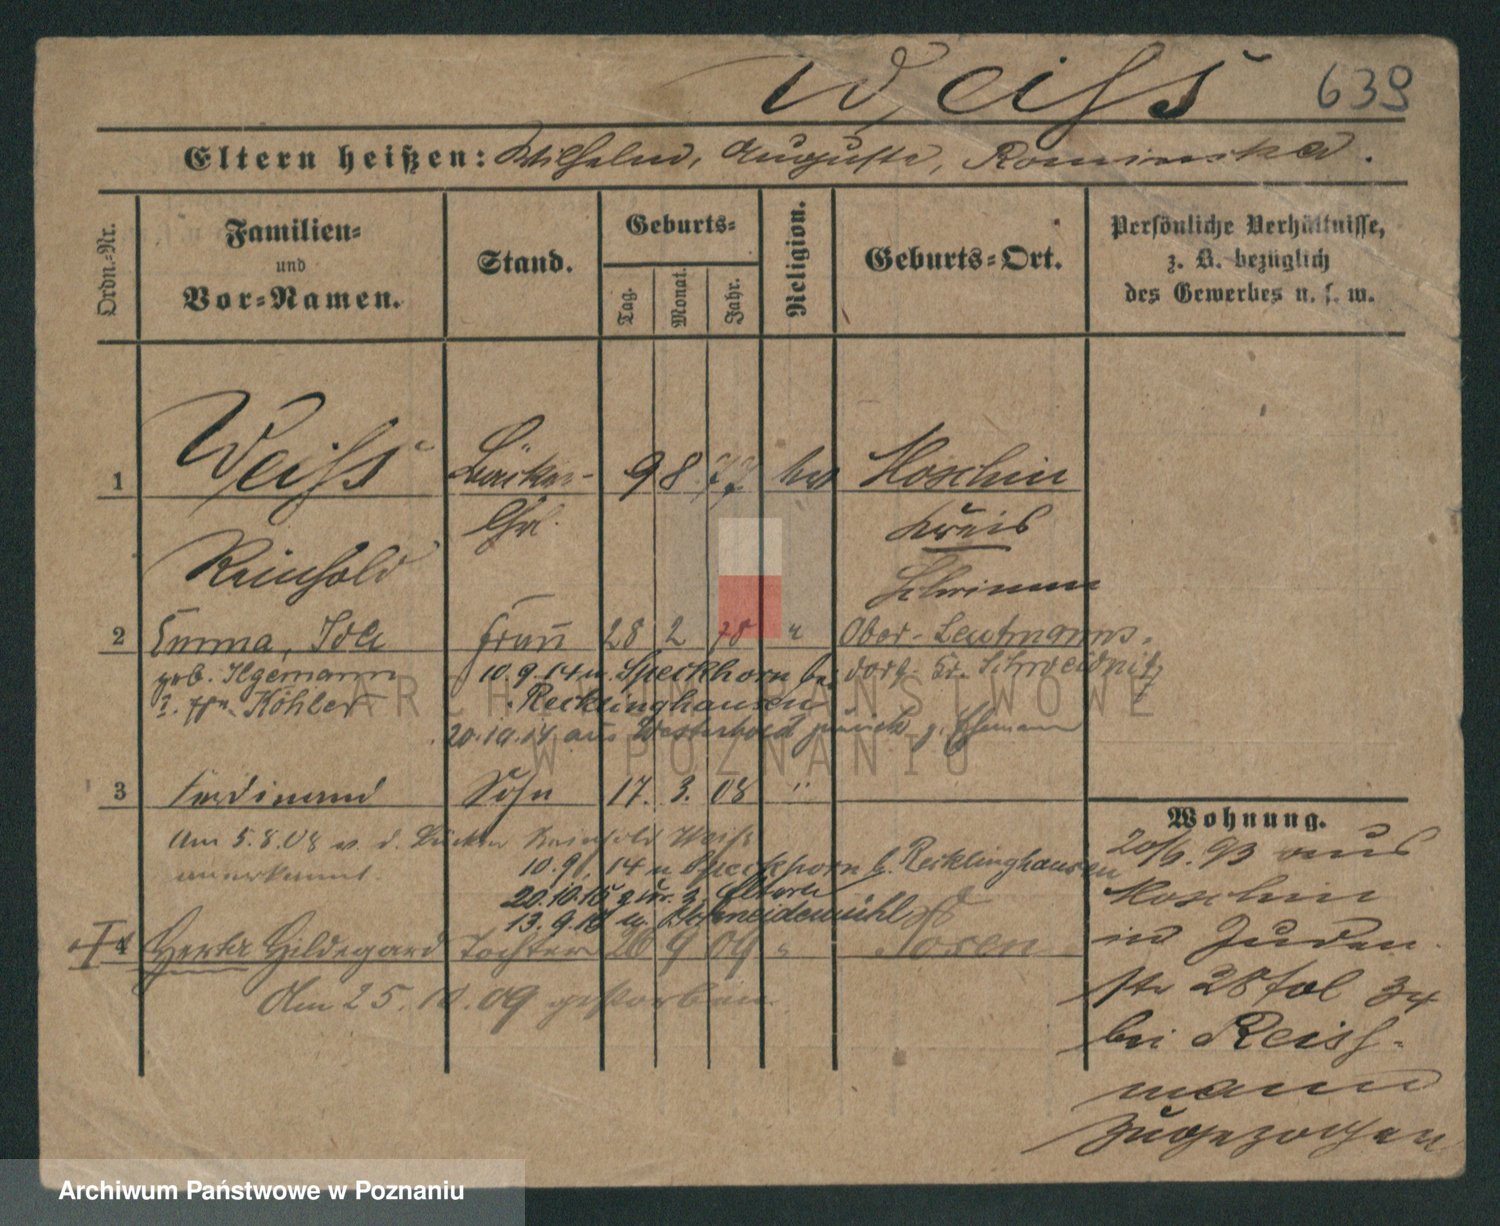 Weiß 639
Eltern heißen: Wilhelm, Auguste, Rominska.
Ordn.=Nr.
Familien=
und
Vor=Namen.
Stand.
Geburts=
Tag.
Monat.
Jahr.
Religion.
Geburts=Ort.
Persönliche Verhältnisse,
z. B. bezüglich
des Gewerbes u. s. w.
1 Weiß Bäcker- 9 8 77 Moschin
Kreis
Reinhold Schrimm
2 Emma, Ida Frau 28 2 78 " Ober-Leutmanns-
geb. Ilgemann 10.9.14 n. Speckhorn bei dorf Kr. Schweidnitz
Köhler Recklinghausen
20.10.14 aus Westerholt zurück z. Ehemann
3 Ferdinand Sohn 17. 3. 08 "
Am 5.8.08 v. d. Bäcker Reinhold Weiß
anerkannt
10.9. 14 n Speckhorn b. Recklinghausen
20.10.15 zur. z. Eltern
13.9.16 n. Schneidemühl
4 Herta Hildegard Tochter 26 9 09 " Posen
Am 25.10.09 gestorben.
Wohnung.
20/6.93 aus
Moschin
in Juden-
str 28 fol 34
bei Reiss-
mann
zugezogen
ARCHIWUM PAŃSTWOWE
W POZNANIU
Archiwum Państwowe w Poznaniu